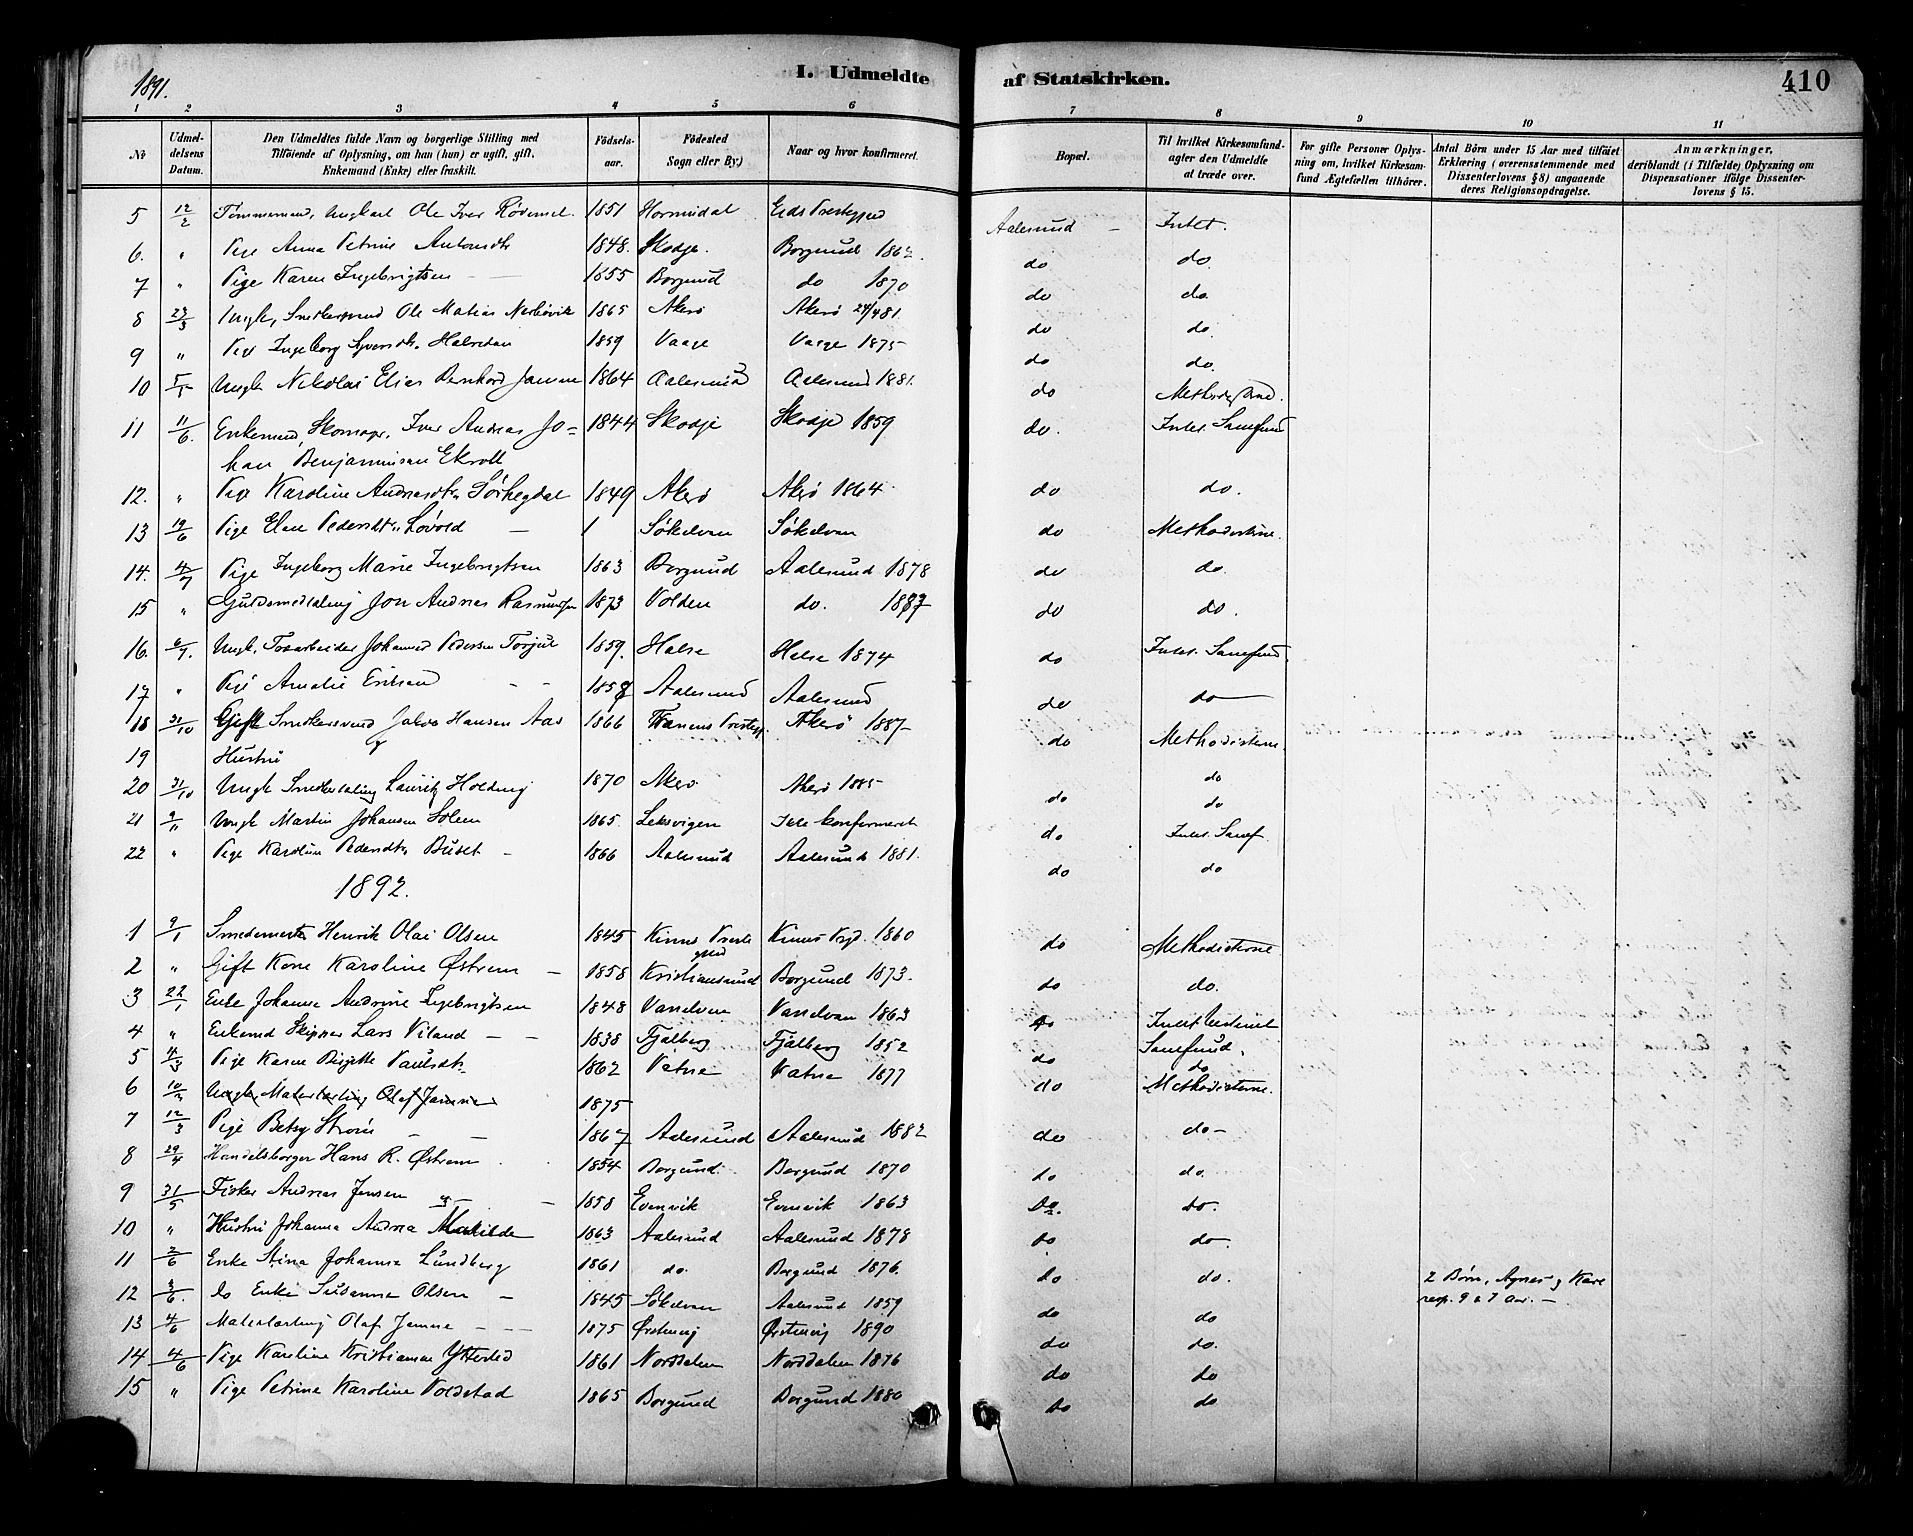 1891.
I. Udmeldte af Statskirken.
410
1 2 3 4 5 6 7 8 9 10 11
No
Udmeldelsens Datum.
Den Udmeldtes fulde Navn og borgerlige Stilling med Tilføiende af Oplysning, om han (hun) er ugift, gift, Enkemand (Enke) eller fraskilt.
Födselsaar.
Födested Sogn eller By)
Naar og hvor konfirmeret.
Bopæl.
Til hvilket Kirkesamfund agter den Udmeldte at træde over.
For gifte Personer Oplysning om, hvilket Kirkesamfund Ægtefællen tilhörer.
Antal Börn under 15 Aar med tilföiet Erklæring (overensstemmende med Dissenterlovens § 8) angaaende deres Religionsopdragelse.
Anmærkninger, deriblandt (i Tilfælde) Oplysning om Dispensationer ifölge Dissenterlovens § 15.
5 12/2 Tømmermand, Ungkarl Ole Iver 1851 Eids Aalesund - Intet.
6. " Pige Anna Petrine 1848. Skodje. Borgund 1862. do do.
7 " Pige Karen Ingebrigtsen 1855 Borgund do 1870 do do.
8 23/3 Ungk, Ole Matias 1865 Akerø Akerø 24/4 81. do do.
9 " Pige Ingeborg 1859 Vaage Vaage 1875 do do.
10 5/5 Ungk Nikolai Elias Bernhard Jansen 1864 Aalesund Aalesund 1881. do
11 11/6. Enkemand, Skomager, Iver Andreas Jo=
han Benjaminsen Ekroll 1844 Skodje Skodje 1859 do. Samfund
12. " Pige Karoline 1849 Akerø Akerø 1864 do do.
13 19/6 Pige Elen Løvold - 1 Søkelven Søkelven do Methodisterne.
14. 4/7 Pige Ingeborg Marie Ingebrigtsen 1863 Borgund Aalesund 1878 do do.
15 " Jon Andreas Rasmussen 1873 Volden do. 1887 do do.
16. 6/7. Ungk. Johannes Pedersen 1859. Halse Halse 1874 do Samfund.
17 " Pige Amalie Eriksen 1858 Aalesund Aalesund do do
18 31/10 Gift Hansen Aas 1866 Akerø 1887 do Methodisterne.
19 Hustru do
20 31/10 Ungk Lauritz 1870 Akerø Akerø 1885 do do
21 9/11 Ungk Martin Johansen Solem 1865. Leksvigen Ikke konfirmeret do Samf.
22 " Pige Karoline Buset - 1866 Aalesund Aalesund 1881. do do
1892.
1 9/1 Smedemester Henrik Olai Olsen 1845 Kinns Præstegjeld Kinns 1860 do Methodisterne
2 " Gift Kone Karoline Østrem - 1858 Kristiansund Borgund 1873. do do.
3 22/1 Enke Johanne Andrine Ingebrigtsen 1848 Vanelven Vanelven 1863 do
4 " Enkemd Skipper Lars Viland - - 1838 Fjælberg Fjælberg 1852 do Samfund.
5 4/3 Pige Karen Birgitte 1862 Vatne Vatne 1877 do do
6 10/3 Ungk. Malerlærling Olaf Jamne 1875 Methodisterne.
7 12/3 Pige Betsy Strøm - - 1867 Aalesund Aalesund 1882 do do -
8 29/4 Handelsborger Hans R. Østrem 1854 Borgund Borgund 1870 do do.
9 31/5 Fisker Andreas Jensen - 1858 Evenvik Evenvik 1863 Do. do.
10 " Hustru Johanna Andrea Matilde 1863 Aalesund Aalesund 1878 do do.
11 2/6 Enke Stina Johanna Lundberg 1861 do. Borgund 1876. do do. 2 Børn, Agnes og Kare
resp. 9 & 7 Aar. -
12 3/6. do Enke Susanna Olsen - 1845 Søkelven Aalesund 1859 do do
13 4/6 Malerlærling Olaf Jamne - - 1875 Ørstenvig Ørstenvig 1890 do do.
14 4/6 Pige Karoline Kristianne 1861 Norddalen Norddalen 1876 do do
15 " Pige Petrine Karoline Voldstad 1865 Borgund Borgund 1880 do do